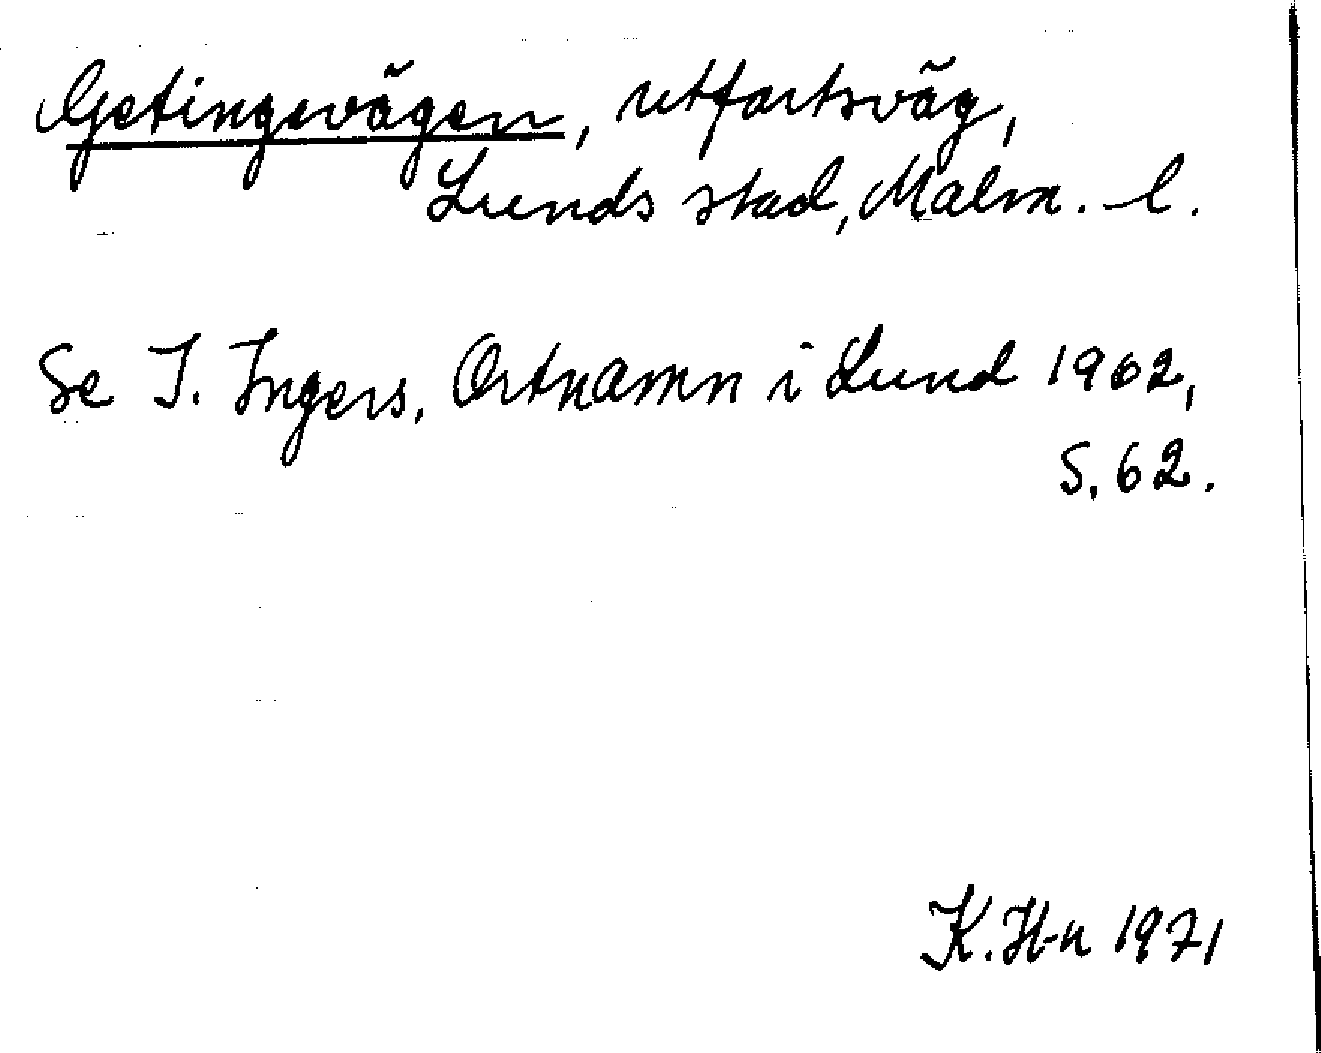 Getingevägen, utfartsväg,
Lunds stad, Malm. l.
Se I. Ingers, Ortnamn i Lund 1962,
S. 62.
K. H-n 1971